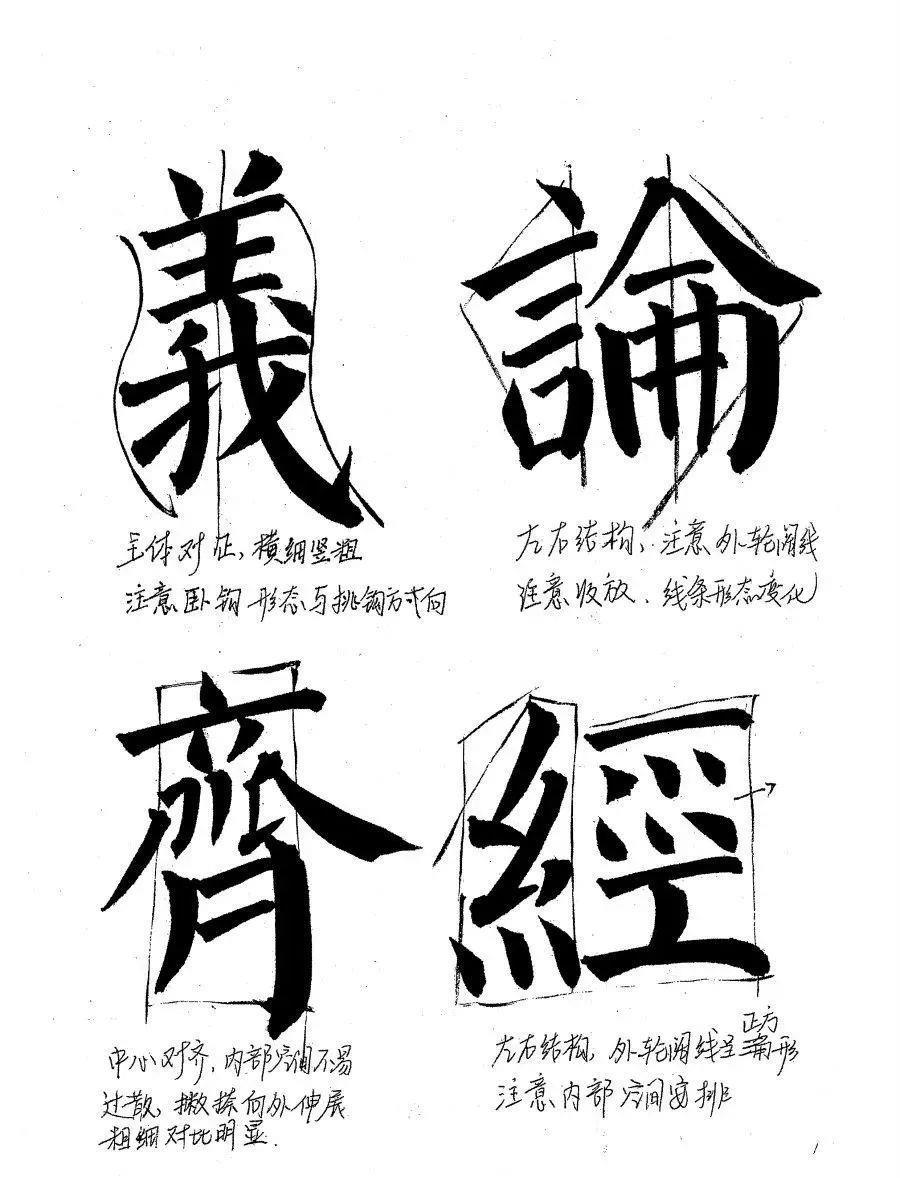 義
主体对正，横细竖粗
注意卧钩形态与挑钩方式向
論
左右结构，注意外轮阔线
注意收放．线条形态变化
齊
中心对齐，内部空间不易
过散，撇捺向外伸展
粗细对比明显．
經
左右结构，外轮阔线呈正方形
注意内部空间安排